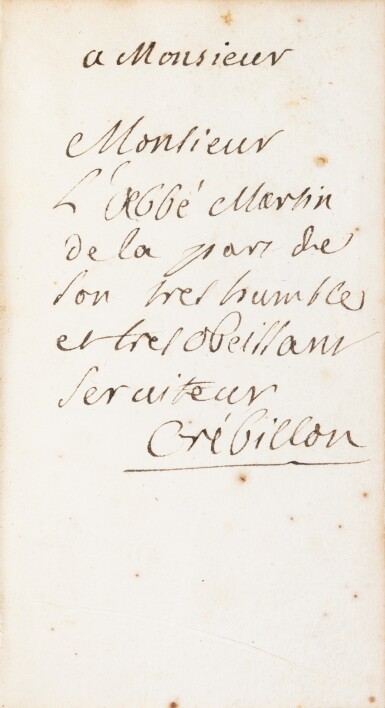 a Monsieur
Monsieur
L'abbé Martin
de la part de
son tres humble
et tres obeissant
serviteur
Crébillon